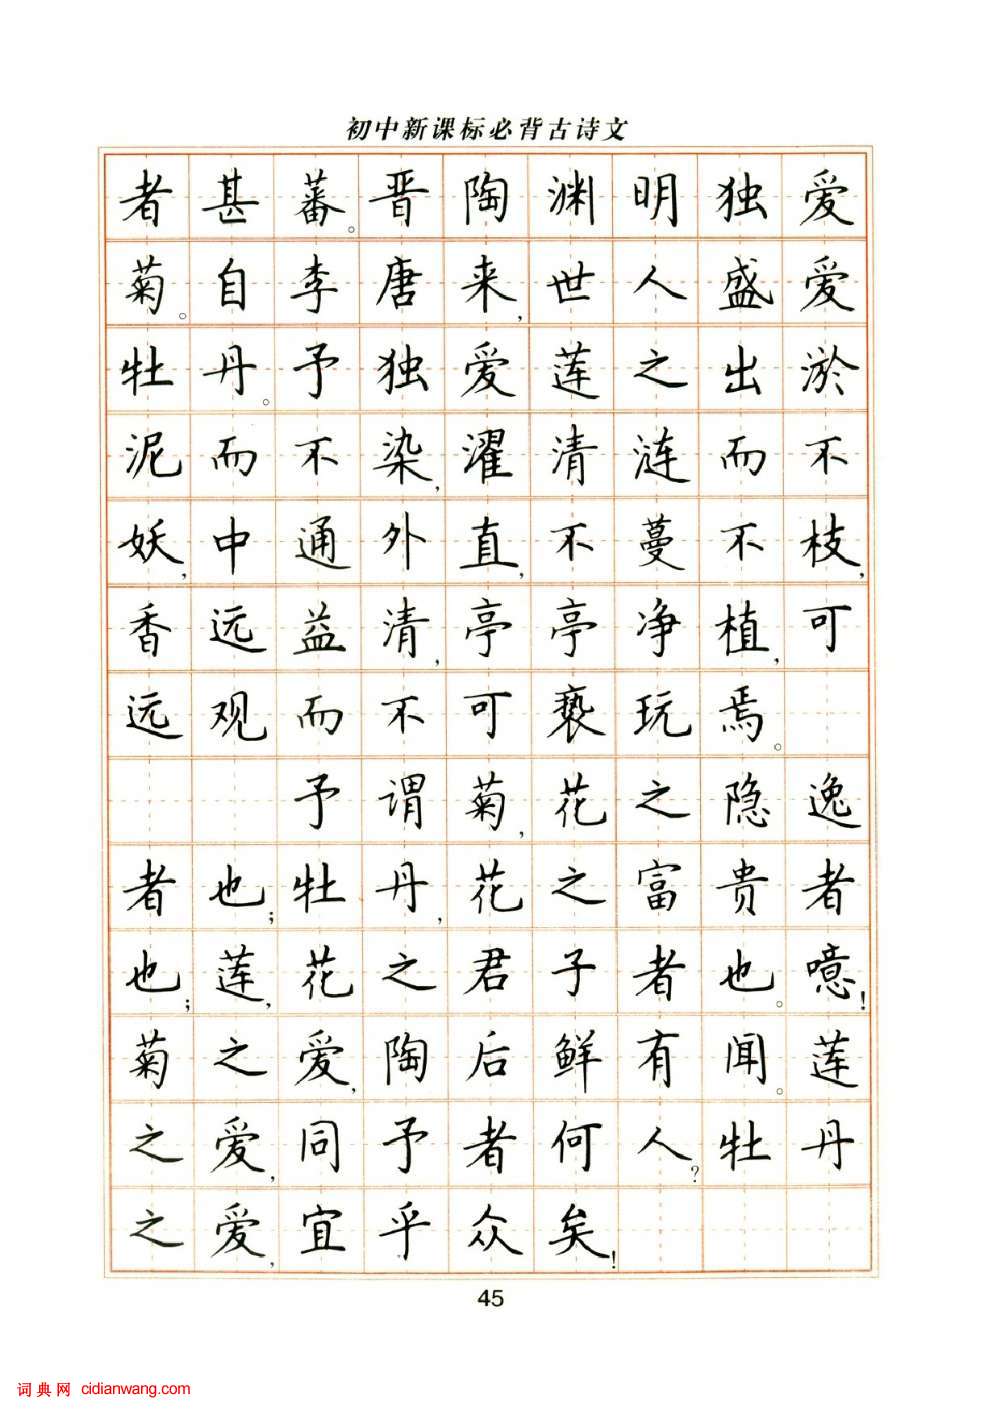 初中新课标必背古诗文
者甚蕃。晋陶渊明独爱
菊。自李唐来,世人盛爱
牡丹。予独爱莲之出淤
泥而不染,濯清涟而不
妖,中通外直,不蔓不枝,
香远益清,亭亭净植,可
远观而不可亵玩焉。
予谓菊,花之隐逸
者也;牡丹,花之富贵者
也;莲,花之君子者也。噫!
菊之爱,陶后鲜有闻。莲
之爱,同予者何人?牡丹
之爱,宜乎众矣!
45
词典网 cidianwang.com